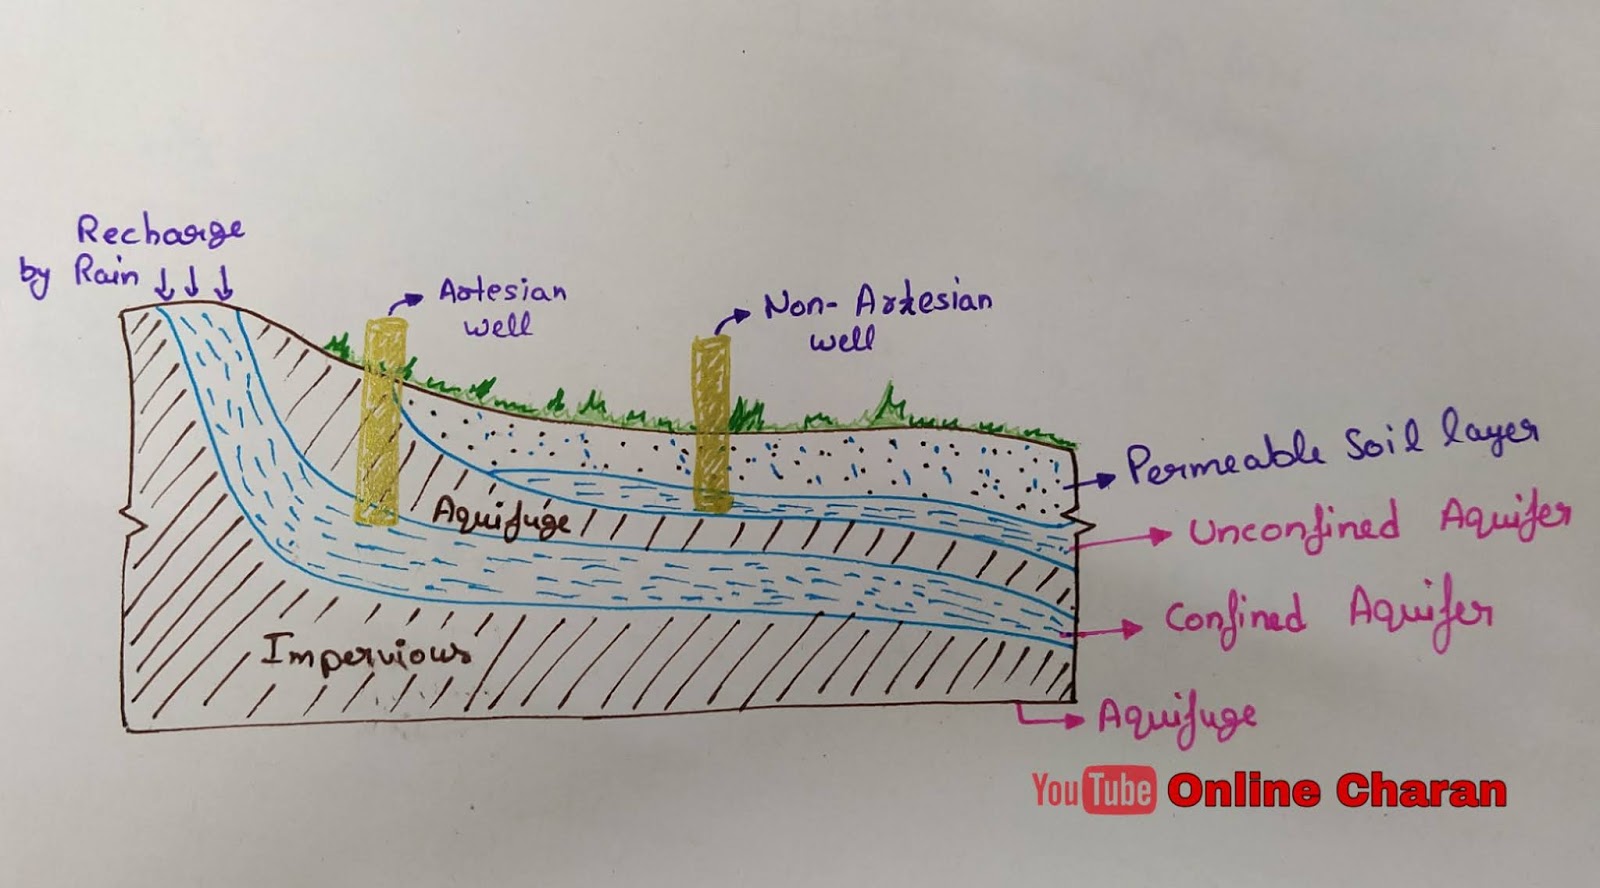 Recharge
by Rain
Artesian
well
Non-Artesian
well
Permeable Soil layer
Unconfined Aquifer
Aquifuge
Confined Aquifer
Impervious
Aquifuge
YouTube Online Charan